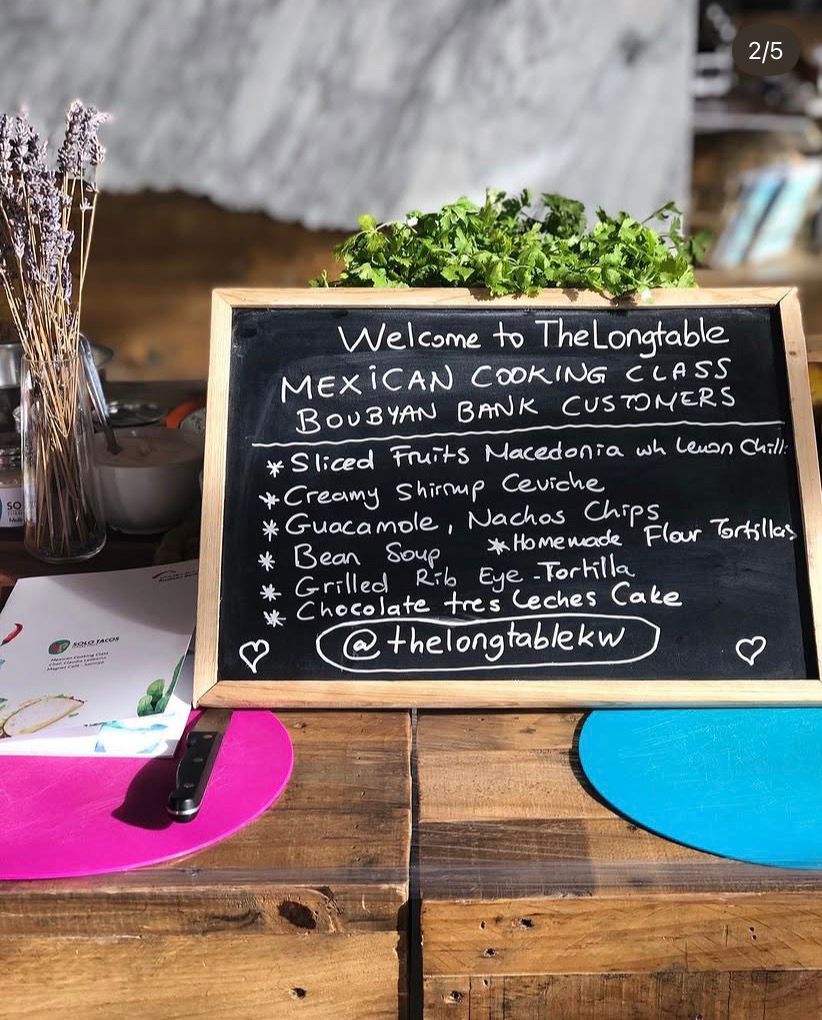 2/5
Welcome to TheLongtable
MEXiCAN COOKING CLASS
BOUBYAN BANK CUSTOMERS
* Sliced Fruits Macedonia wh Lemon Chili
* Creamy Shirmp Ceviche
* Guacamole, Nachos Chips
* Bean Soup * Homemade Flour Tortillas
* Grilled Rib Eye - Tortilla
* Chocolate tres Leches Cake
@thelongtablekw
SO
SOLO TACOS
Mexican Cooking Class